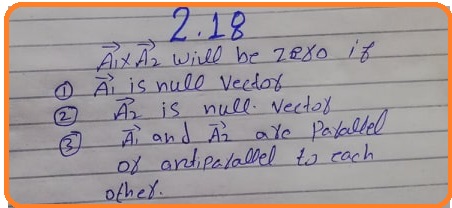 2.18
A₁⃗ x A₂⃗ will be zero if
① A₁⃗ is null vector
② A₂⃗ is null. vector
③ A₁⃗ and A₂⃗ are Parallel
or antiparallel to each
other.